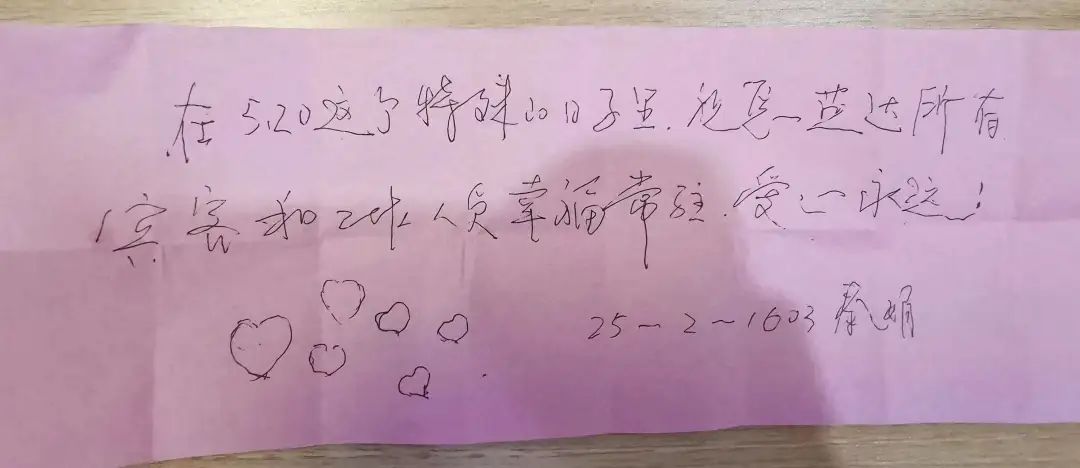 在520这个特殊的日子里,祝惠蓝达所有
宾客和工作人员幸福常驻,爱心永远!
25-2-1603 秦娟